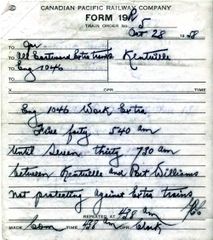 CANADIAN PACIFIC RAILWAY COMPANY
FORM 19
TRAIN ORDER No. 5
Oct 28 1958
TO
TO All Eastward Extra trains Kentville
TO Eng 1046
Eng 1046 Work Extra
Five forty 540 am
Until Seven thirty 730 am
between Kentville and Port Williams
Not protecting against Extra trains
REPEATED AT 438 am
Made Com Time 438 am Opr Clark